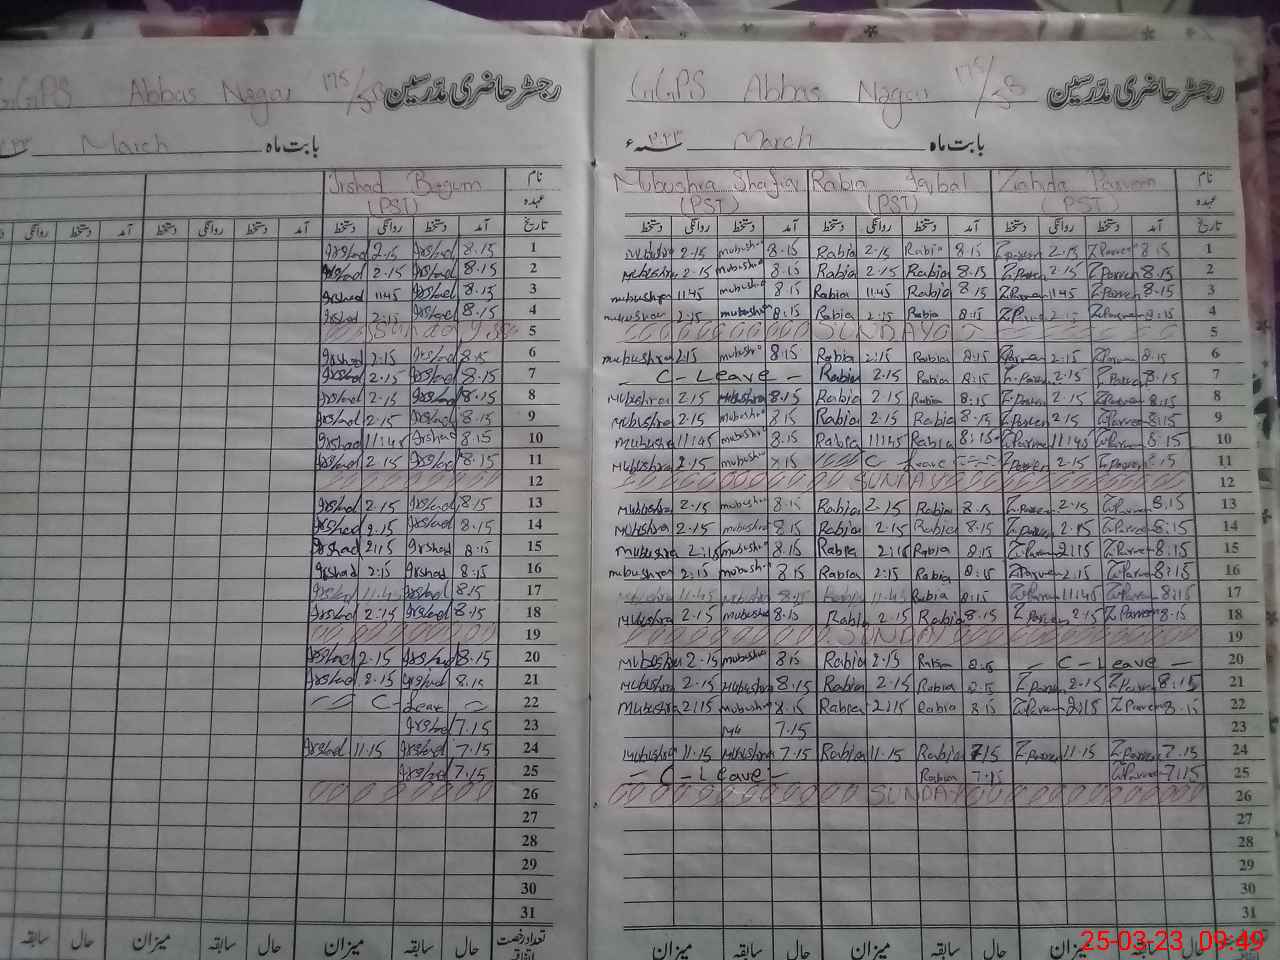 GGPS Abbas Nagar 175/SB رجسٹر حاضری مدرسین
March بابت ماہ
Irshad Begum نام
(PST) عہدہ
آمد دستخط روانگی دستخط آمد دستخط روانگی دستخط تاریخ
Irshad 2.15 Irshad 8.15 1
Irshad 2.15 Irshad 8.15 2
Irshad 11.45 Irshad 8.15 3
Irshad 2.15 Irshad 8.15 4
Sunday 5
Irshad 2:15 Irshad 8.15 6
Irshad 2.15 Irshad 8.15 7
Irshad 2.15 Irshad 8.15 8
Irshad 2.15 Irshad 8.15 9
Irshad 11:45 Irshad 8.15 10
Irshad 2.15 Irshad 8.15 11
12
Irshad 2.15 Irshad 8.15 13
Irshad 2.15 Irshad 8.15 14
Irshad 2:15 Irshad 8.15 15
Irshad 2:15 Irshad 8.15 16
Irshad 11.45 Irshad 8.15 17
Irshad 2.15 Irshad 8.15 18
19
Irshad 2.15 Irshad 8.15 20
Irshad 2.15 Irshad 8.15 21
C-Leav 22
Irshad 7.15 23
Irshad 11.15 Irshad 7.15 24
Irshad 7.15 25
26
27
28
29
30
31
سابقہ حال میزان سابقہ حال میزان سابقہ حال تعداد رخصت
GGPS Abbas Nagar 175/SB رجسٹر حاضری مدرسین
۲۰۲۳ سنہء March بابت ماہ
Mubushra Shafiq Rabia Iqbal Zahida Parveen نام
(PST) (PST) (PST) عہدہ
دستخط روانگی دستخط آمد دستخط روانگی دستخط آمد دستخط روانگی دستخط آمد تاریخ
Mubushra 2.15 mubushra 8.15 Rabia 2.15 Rabia 8.15 Z.Parveen 2.15 Z.Parveen 8.15 1
Mubushra 2.15 mubushra 8.15 Rabia 2.15 Rabia 8.15 Z.Parven 2.15 Z.Parven 8.15 2
mubushra 11.45 mubushra 8.15 Rabia 11.45 Rabia 8.15 Z.Parven 11.45 Z.Parven 8.15 3
mubushra 2.15 mubushra 8:15 Rabia 2.15 Rabia 8:15 Z.Parven 2.15 Z.Parven 8:15 4
SUNDAY 5
mubushra 2:15 mubushra 8.15 Rabia 2:15 Rabia 8:15 Z.Parven 2.15 Z.Parven 8.15 6
C-Leave Rabia 2.15 Rabia 8:15 Z.Parven 2.15 Z.Parven 8.15 7
Mubushra 2.15 Mubushra 8.15 Rabia 2.15 Rabia 8:15 Z.Parven 2.15 Z.Parven 8:15 8
Mubushra 2.15 mubushra 8.15 Rabia 2.15 Rabia 8.15 Z.Parven 2.15 Z.Parven 8:15 9
Mubushra 11:45 mubushra 8:15 Rabia 11:45 Rabia 8:15 Z.Parven 11:45 Z.Parven 8:15 10
Mubushra 2.15 mubushra 8.15 C Leave Z.Parven 2.15 Z.Parven 8.15 11
SUNDAY 12
Mubushra 2.15 mubushra 8.15 Rabia 2.15 Rabia 8.15 Z.Parven 2.15 Z.Parven 8.15 13
Mubushra 2.15 mubushra 8.15 Rabia 2.15 Rabia 8.15 Z.Parven 2.15 Z.Parven 8:15 14
Mubushra 2:15 mubushra 8.15 Rabia 2:15 Rabia 8:15 Z.Parven 2:15 Z.Parven 8:15 15
mubushra 2:15 mubushra 8.15 Rabia 2:15 Rabia 8:15 Z.Parven 2.15 Z.Parven 8:15 16
Mubushra 11:45 Mubushra 8:15 Rabia 11:45 Rabia 8:15 Z.Parven 11:45 Z.Parven 8:15 17
Mubushra 2.15 mubushra 8.15 Rabia 2.15 Rabia 8.15 Z Parven 2.15 Z.Parven 8.15 18
SUNDAY 19
Mubushra 2.15 mubushra 8.15 Rabia 2.15 Rabia 8.15 C-Leave 20
Mubushra 2.15 Mubushra 8.15 Rabia 2.15 Rabia 8.15 Z.Parven 2.15 Z.Parven 8:15 21
Mubushra 2:15 mubushra 8.15 Rabia 2:15 Rabia 8.15 Z.Parven 2:15 Z.Parven 8.15 22
Mu 7.15 23
Mubushra 11.15 Mubushra 7.15 Rabia 11.15 Rabia 7.15 Z.Parven 11.15 Z.Parven 7.15 24
C-Leave Rabia 7.15 Z.Parven 7:15 25
SUNDAY 26
27
28
29
30
31
میزان سابقہ حال میزان سابقہ حال میزان سابقہ حال
25-03-23 09:49